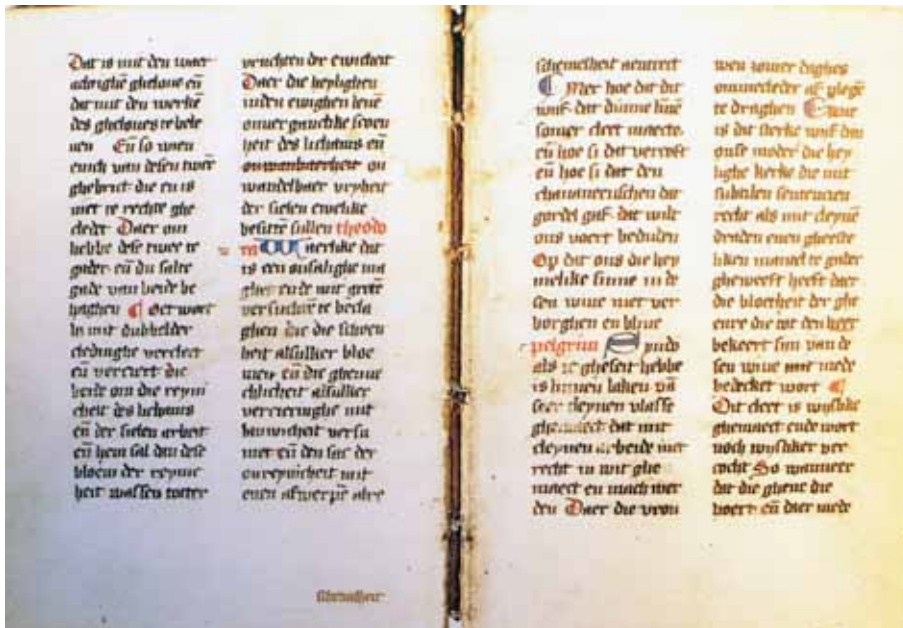 Dat is mit den waer
achtighē ghelove eñ
dat mit den werkē
des gheloves te bele
uen Eñ so wien
enich van desen tweē
ghebrect die en is
niet te rechte ghe
cleder Daer om
hebbe dese twee te
gader eñ du salte
gade van beide be
haghen Dit wort
in mit dubbelder
cledinghe verclert
eñ verciert die
beide om die reyni
cheit des lichams
eñ der sielen arbeit
eñ hem sal dan dese
bloem der reyne
heit wassen totter
vruchten der ewicheit
Daer die heylighen
in den ewighen leuē
onuergancklike scoen
heit des lichams eñ
onwanbaerheit on
wandelbaer vryheit
der sielen ewelike
besittē sullen theodo
rā Waerlike dat
is een onsalighe
ende mit grotē
versuchtē te becla
ghen die die schoen
heit alsulker bloe
men eñ die ghenue
chlicheit alsulker
vercieringhe mit
hauwicheit versu
met eñ den sac der
onreynicheit mit
enen afwerpē alre
schemelheit
scemelheit aentrect
Mer hoe dat dit
wijf dat dunne linē
somer cleet maecte
eñ hoe si dat vercoft
eñ hoe si dat den
chananeeuschen dat
gordel gaf dat wilt
ons voert beduden
Op dat ons die hey
melike sinne in de
sen wiue niet ver
borghen en bliue
pelgrim Sindo
als ic gheseit hebbe
is linnen laken vā
seer cleynen vlasse
ghemaect dat mit
cleynen arbeide niet
recht in wit ghe
maect en mach wer
den Daer die vrou
wen somer daghes
ommecleder af pleghē
te draghen Ewie
is dat sterke wijf dan
onse moder die hey
lighe kerke die mit
subtilen sentencien
recht als mit cleynē
draden enen gheeste
liken mantel te gader
gheweeft heeft daer
die bloetheit der ghe
enre die tot den heer
bekeert sijn van de
sen wiue mit mede
bedecket wort
Dit cleet is wyslike
ghemaect ende wort
noch wysliker ver
cocht So wanneer
dat die ghene die
hoert eñ daer mede